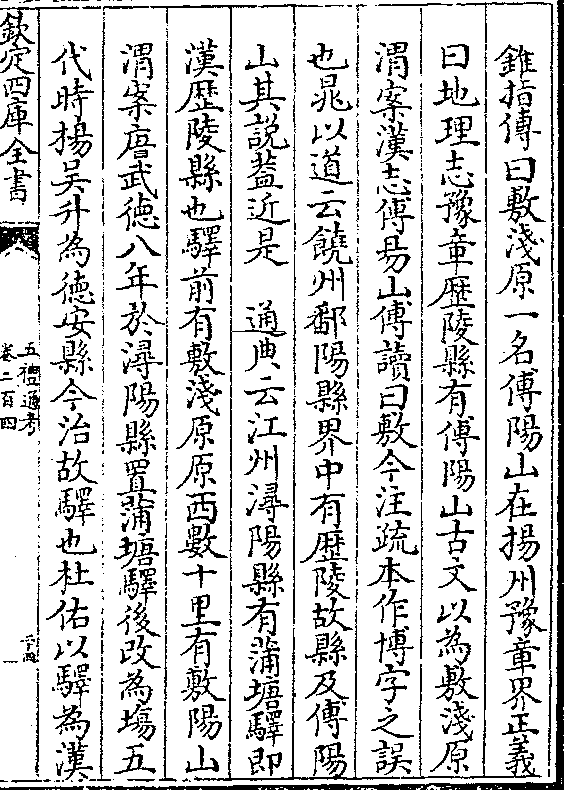 錐指傳曰敷淺原一名傅陽山在揚州豫章界正義
曰地理志豫章歴陵縣有傅陽山古文以為敷淺原
渭案漢志傅昜山傅讀曰敷今注疏本作博字之誤
也晁以道云饒州鄱陽縣界中有歴陵故縣及傅陽
山其說葢近是　通典云江州潯陽縣有蒲塘驛即
漢歴陵縣也驛前有敷淺原原西數十里有敷陽山
渭案唐武徳八年於潯陽縣置蒲塘驛後改為場五
代時揚吴升為徳安縣今治故驛也杜佑以驛為漢
欽定四庫全書
五禮通考
卷二百四